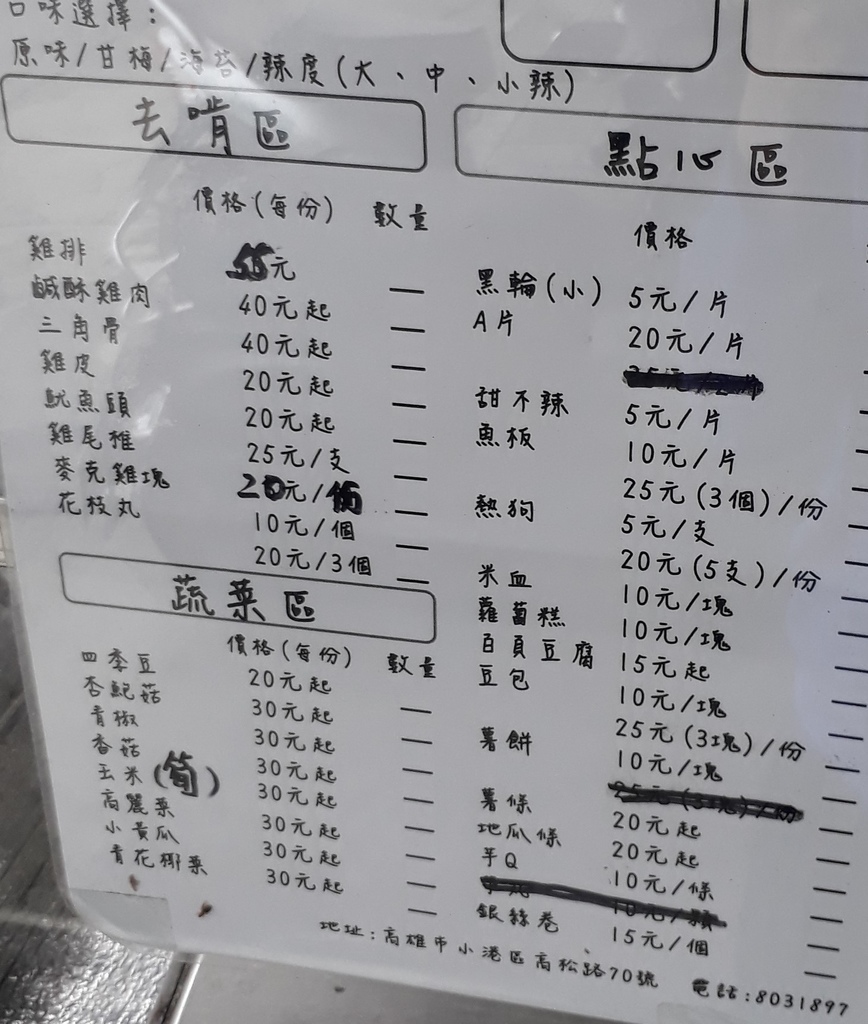 口味選擇：
原味/甘梅/海苔/辣度(大、中、小辣)
去啃區
價格(每份) 數量
雞排 55元
鹹酥雞肉 40元起
三角骨 40元起
雞皮 20元起
魷魚頭 20元起
雞尾椎 25元/支
麥克雞塊 20元/份
花枝丸 10元/個
20元/3個
蔬菜區
價格(每份) 數量
四季豆 20元起
杏鮑菇 30元起
青椒 30元起
香菇 30元起
玉米(筍) 30元起
高麗菜 30元起
小黃瓜 30元起
青花椰菜 30元起
點心區
價格
黑輪(小) 5元/片
A片 20元/片
甜不辣 5元/片
魚板 10元/片
25元(3個)/份
熱狗 5元/支
20元(5支)/份
米血 10元/塊
蘿蔔糕 10元/塊
百頁豆腐 15元起
豆包 10元/塊
25元(3塊)/份
薯餅 10元/塊
薯條 20元起
地瓜條 20元起
芋Q 10元/條
銀絲卷 15元/個
地址：高雄市小港區高松路70號 電話：8031897